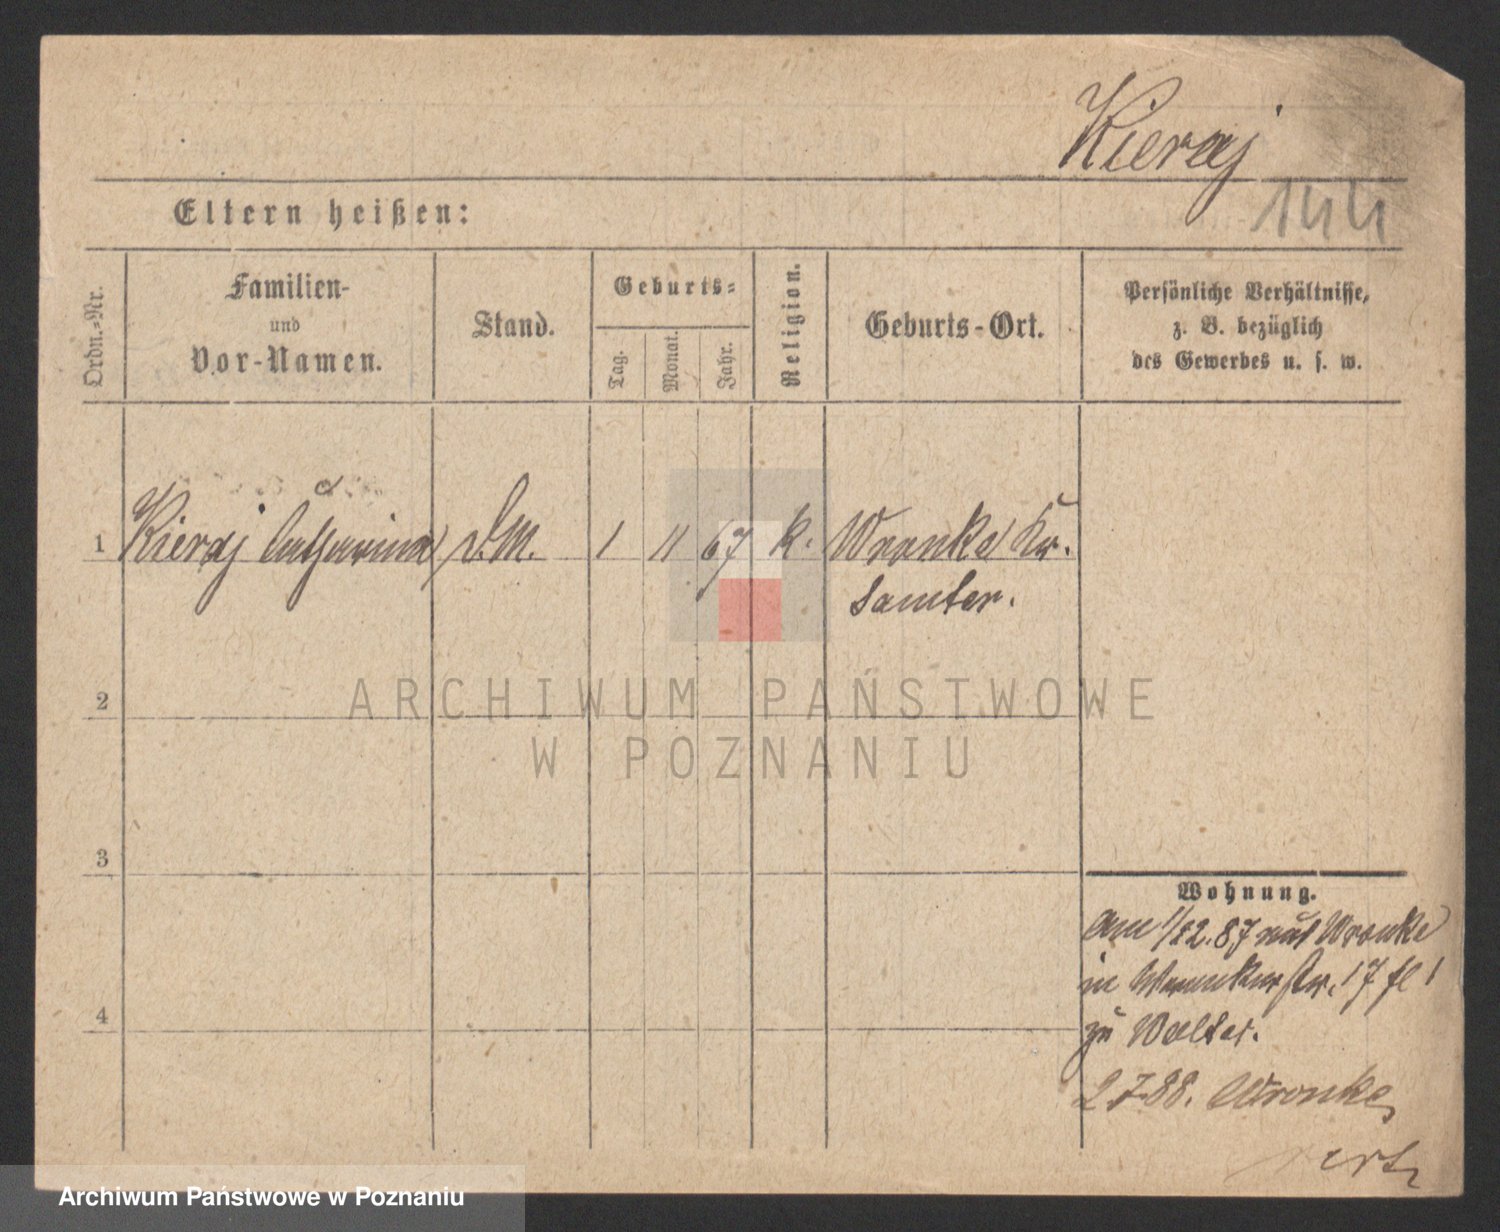 Kieraj
144
Eltern heißen:
Ordn.=Nr.
Familien-
und
Vor-Namen.
Stand.
Geburts=
Tag.
Monat.
Jahr.
Religion.
Geburts-Ort.
Persönliche Verhältnisse,
z. B. bezüglich
des Gewerbes u. s. w.
1 Kieraj Catharina D.M. 1 11 67 k. Wronke Kr.
Samter.
2
ARCHIWUM PAŃSTWOWE
W POZNANIU
3
Wohnung.
Am 1/12.87 aus Wronke
in 17
zu Walter.
4
2.7.88. Wronke
Archiwum Państwowe w Poznaniu